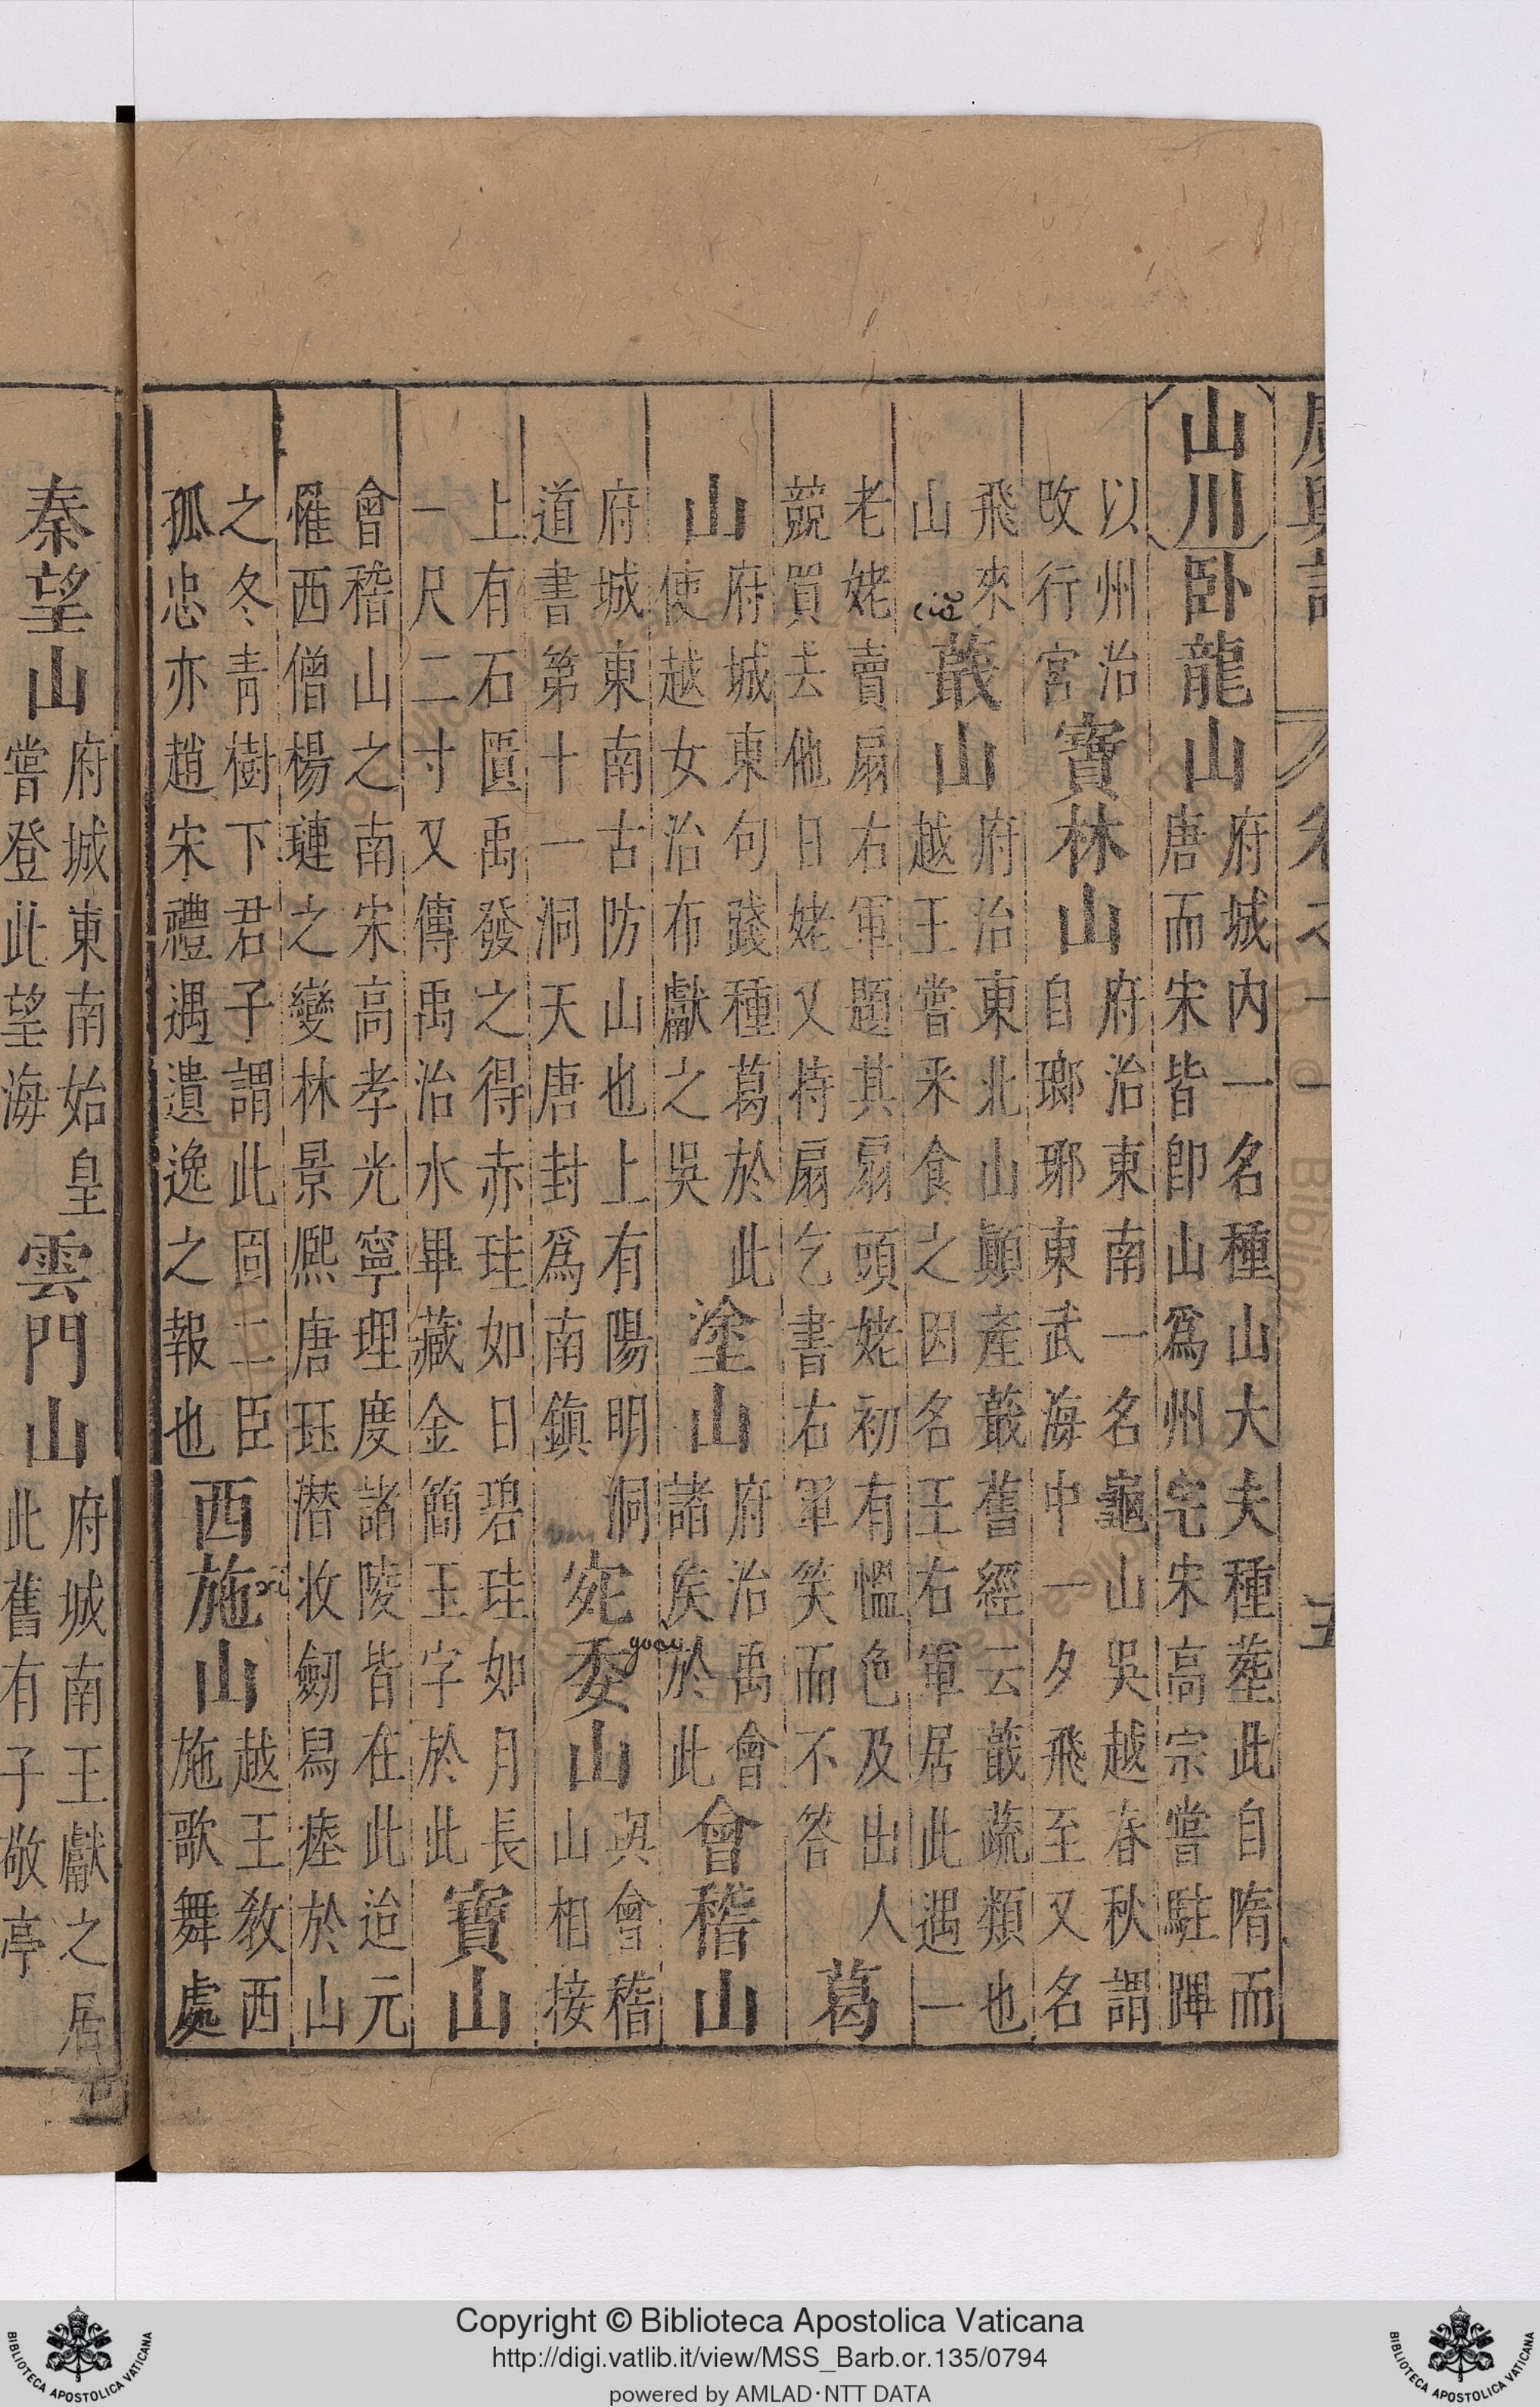 廣輿記 卷之十一 五
山川臥龍山府城内一名種山大夫種塟此自隋而唐而宋皆卽山爲州宅宋高宗嘗駐蹕
以州治改行宮寶林山府治東南一名龜山吳越春秋謂自瑯琊東武海中一夕飛至又名
飛來山蕺山府治東北山顚產蕺舊經云蕺蔬類也越王嘗釆食之因名王右軍居此遇一
老姥賣扇右軍題其扇頭姥初有慍色及出人競買去他日姥又持扇乞書右軍笑而不答葛
山府城東句踐種葛於此使越女治布獻之吳塗山府治禹會諸矦於此會稽山
府城東南古防山也上有陽明洞道書第十一洞天唐封爲南鎮宛委山與會稽山相接
上有石匱禹發之得赤珪如日碧珪如月長一尺二寸又傳禹治水畢藏金簡玉字於此寶山
會稽山之南宋高孝光寧理度諸陵皆在此迨元罹西僧楊璉之變林景熈唐珏潜收劒舄瘞於山
之冬青樹下君子謂此固二臣孤忠亦趙宋禮遇遺逸之報也西施山越王教西施歌舞處
秦望山府城東南始皇嘗登此望海雲門山府城南王獻之居此舊有子敬亭
goei
xi
Copyright © Biblioteca Apostolica Vaticana
http://digi.vatlib.it/view/MSS_Barb.or.135/0794
powered by AMLAD·NTT DATA
BIBLIOTECA APOSTOLICA VATICANA
BIBLIOTECA APOSTOLICA VATICANA